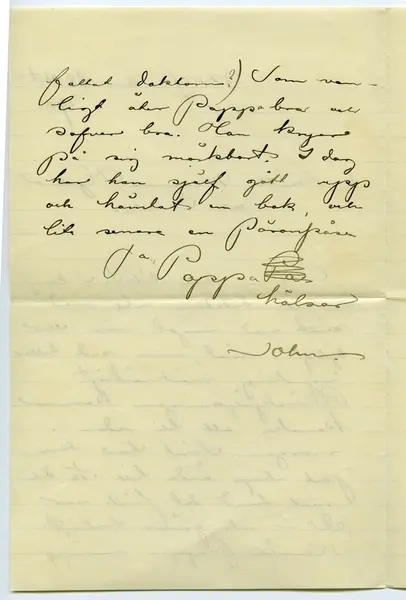 fattat doktorn?) Som van-
ligt äter Pappa bra och
sofver bra. Han kryar
på sig märkbart. I dag
har han själf gått upp
och hämtat en bok, och
lite senare en Päronpåse
Ja, Pappa
hälsar
John